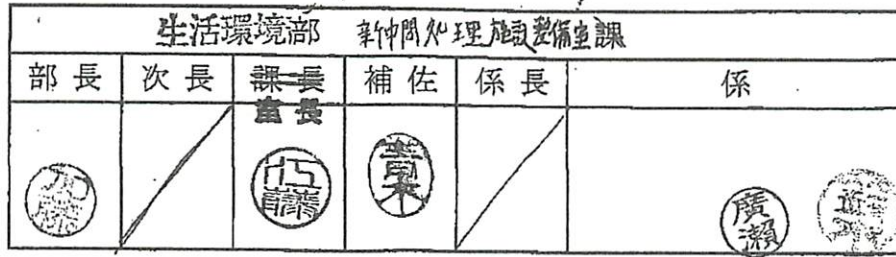 生活環境部 新中間処理施設整備室課
部長 次長 課長 補佐 係長 係
室長
加藤 工藤 青木 廣瀬